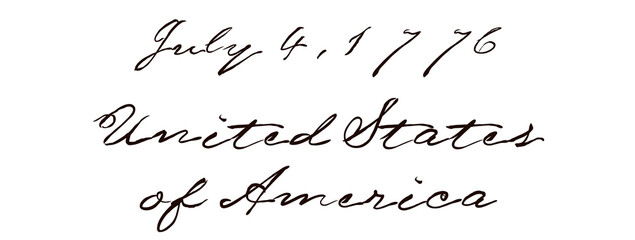 July 4, 1776
United States
of America